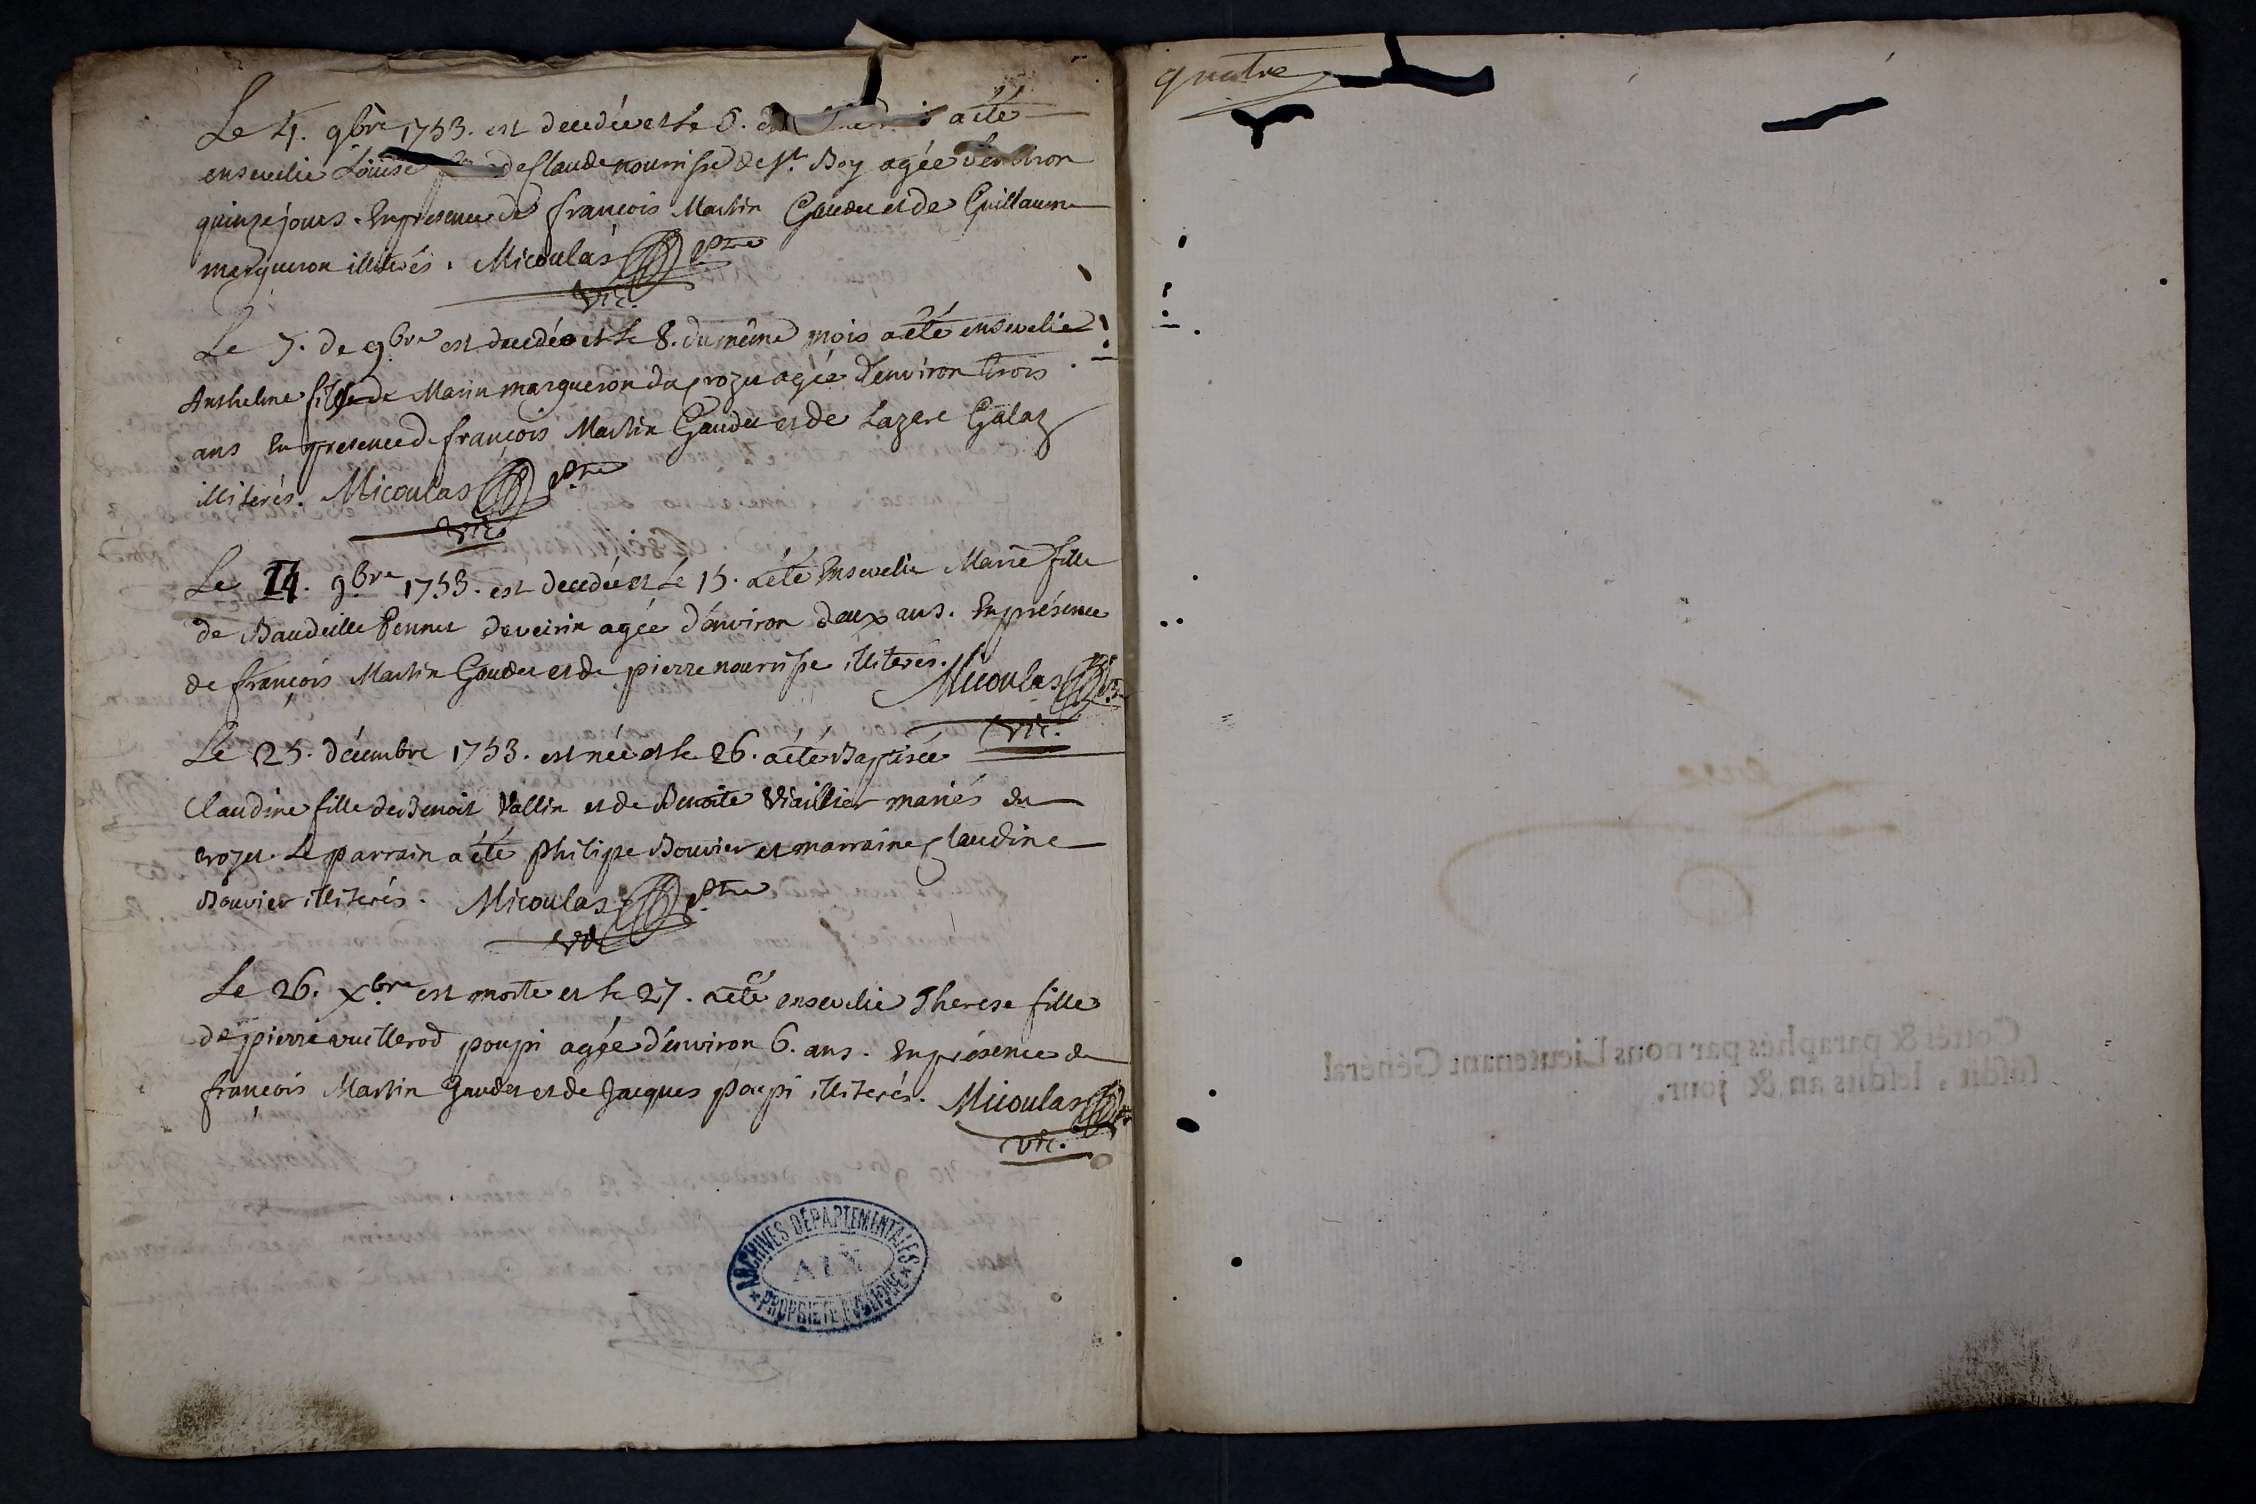 Le 4. 9bre 1753. est decedée et le 5. du a été
ensevelie Loüise de Claude nourrisse de st. Boy agée d'environ
quinze jours. En presence de françois Martin Gaudet et de Guillaume
margueron illiterés. Micoulas ptre
vic.
Le 7. de 9bre est decedée et le 8. du même mois a été ensevelie
Antheline fille de Marin margueron du crozet agée d'environ trois
ans En presence de françois Martin Gaudet et de Lazare Galaz
illiterés. Micoulas ptre
vic.
Le 14. 9bre 1753. est decedée et Le 15. a été Ensevelie Marie fille
de Baudeille Pennet deveirin agée d'environ deux ans. En présence
de françois Martin Gaudet et de pierre nourrisse illiterés. Micoulas ptre
vic.
Le 25. décembre 1753. est née et le 26. a été Baptisée
Claudine fille de Benoit Vallin et de Benoite Viaillier mariés du
crozet. Le parrain a été philipe Bouvier et marraine Claudine
Bouvier illiterés. Micoulas ptre
vic
Le 26. xbre est morte et le 27. a été ensevelie Therese fille
de pierre vuillerod poupi agée d'environ 6. ans. En présence de
françois Martin Gaudet et de Jacques poupi illiterés. Micoulas ptre
vic.
ARCHIVES DÉPARTEMENTALES
AIN
PROPRIÉTÉ PUBLIQUE
quatre
Cottés & paraphés par nous Lieutenant Général
susdit, lesdits an & jour.